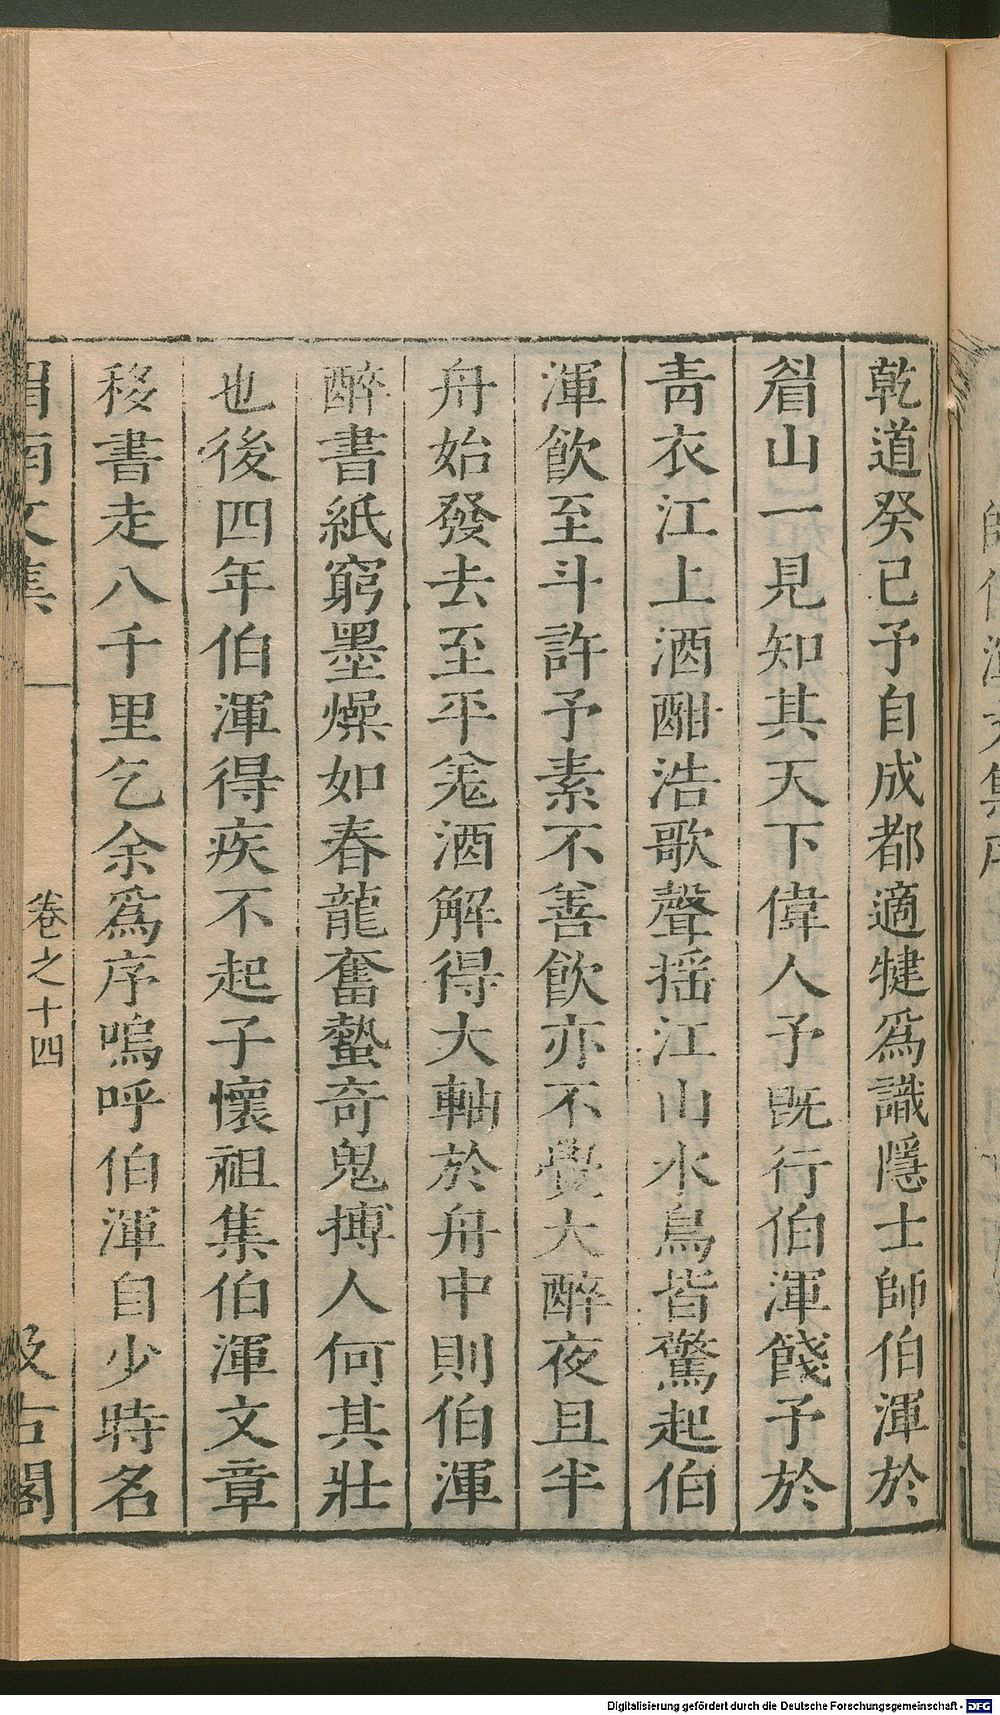 乾道癸巳予自成都適犍爲識隱士師伯渾於
眉山一見知其天下偉人予既行伯渾餞予於
青衣江上酒酣浩歌聲摇江山水鳥皆驚起伯
渾飲至斗許予素不善飲亦不覺大醉夜且半
舟始發去至平羌酒解得大軸於舟中則伯渾
醉書紙窮墨燥如春龍奮蟄奇鬼搏人何其壯
也後四年伯渾得疾不起子懷祖集伯渾文章
移書走八千里乞余爲序嗚呼伯渾自少時名
渭南文集
卷之十四
汲古閣
Digitalisierung gefördert durch die Deutsche Forschungsgemeinschaft - DFG